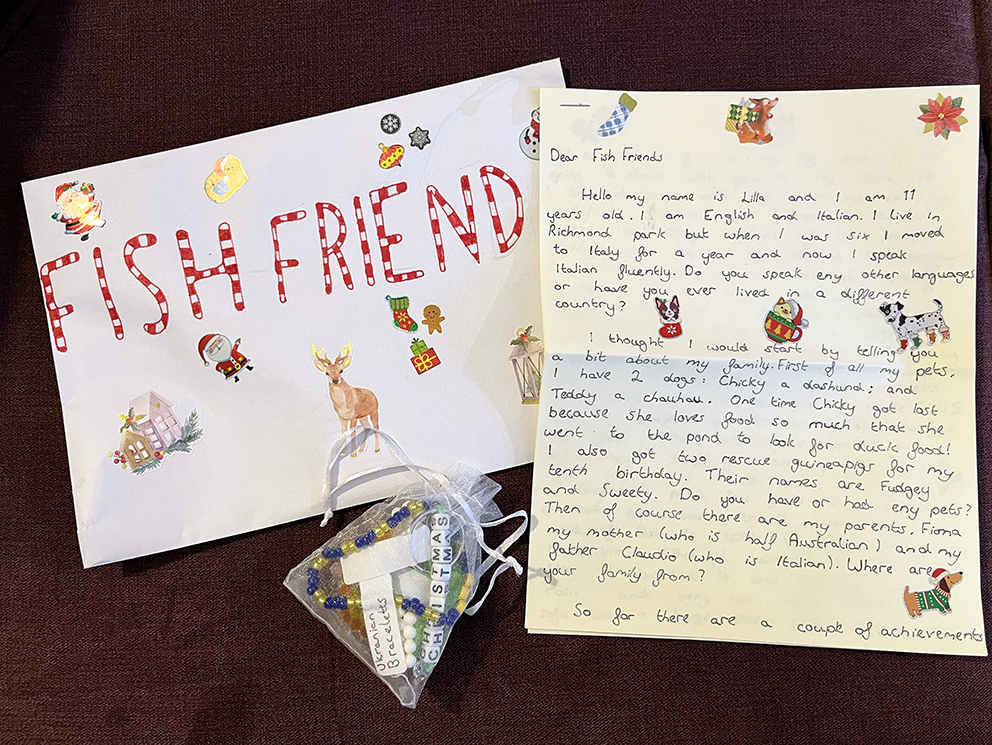 FISH FRIEND
Ukranian
Braceletts
CHRISTMAS
Dear Fish Friends
Hello my name is Lilla and I am 11
years old. I am English and Italian. I live in
Richmond park but when I was six I moved
to Italy for a year and now I speak
Italian fluently. Do you speak eny other languages
or have you ever lived in a different
country?
I thought I would start by telling you
a bit about my family. First of all my pets.
I have 2 dogs: Chicky a dashund; and
Teddy a chauhau. One time Chicky got last
because she loves food so much that she
went to the pond to look for duck food!
I also got two rescue guineapigs for my
tenth birthday. Their names are Fudgey
and Sweety. Do you have or had eny pets?
Then of course there are my parents. Fiona
my mother (who is half Australian) and my
father Claudio (who is Italian). Where are
your family from?
So far there are a couple of achievements